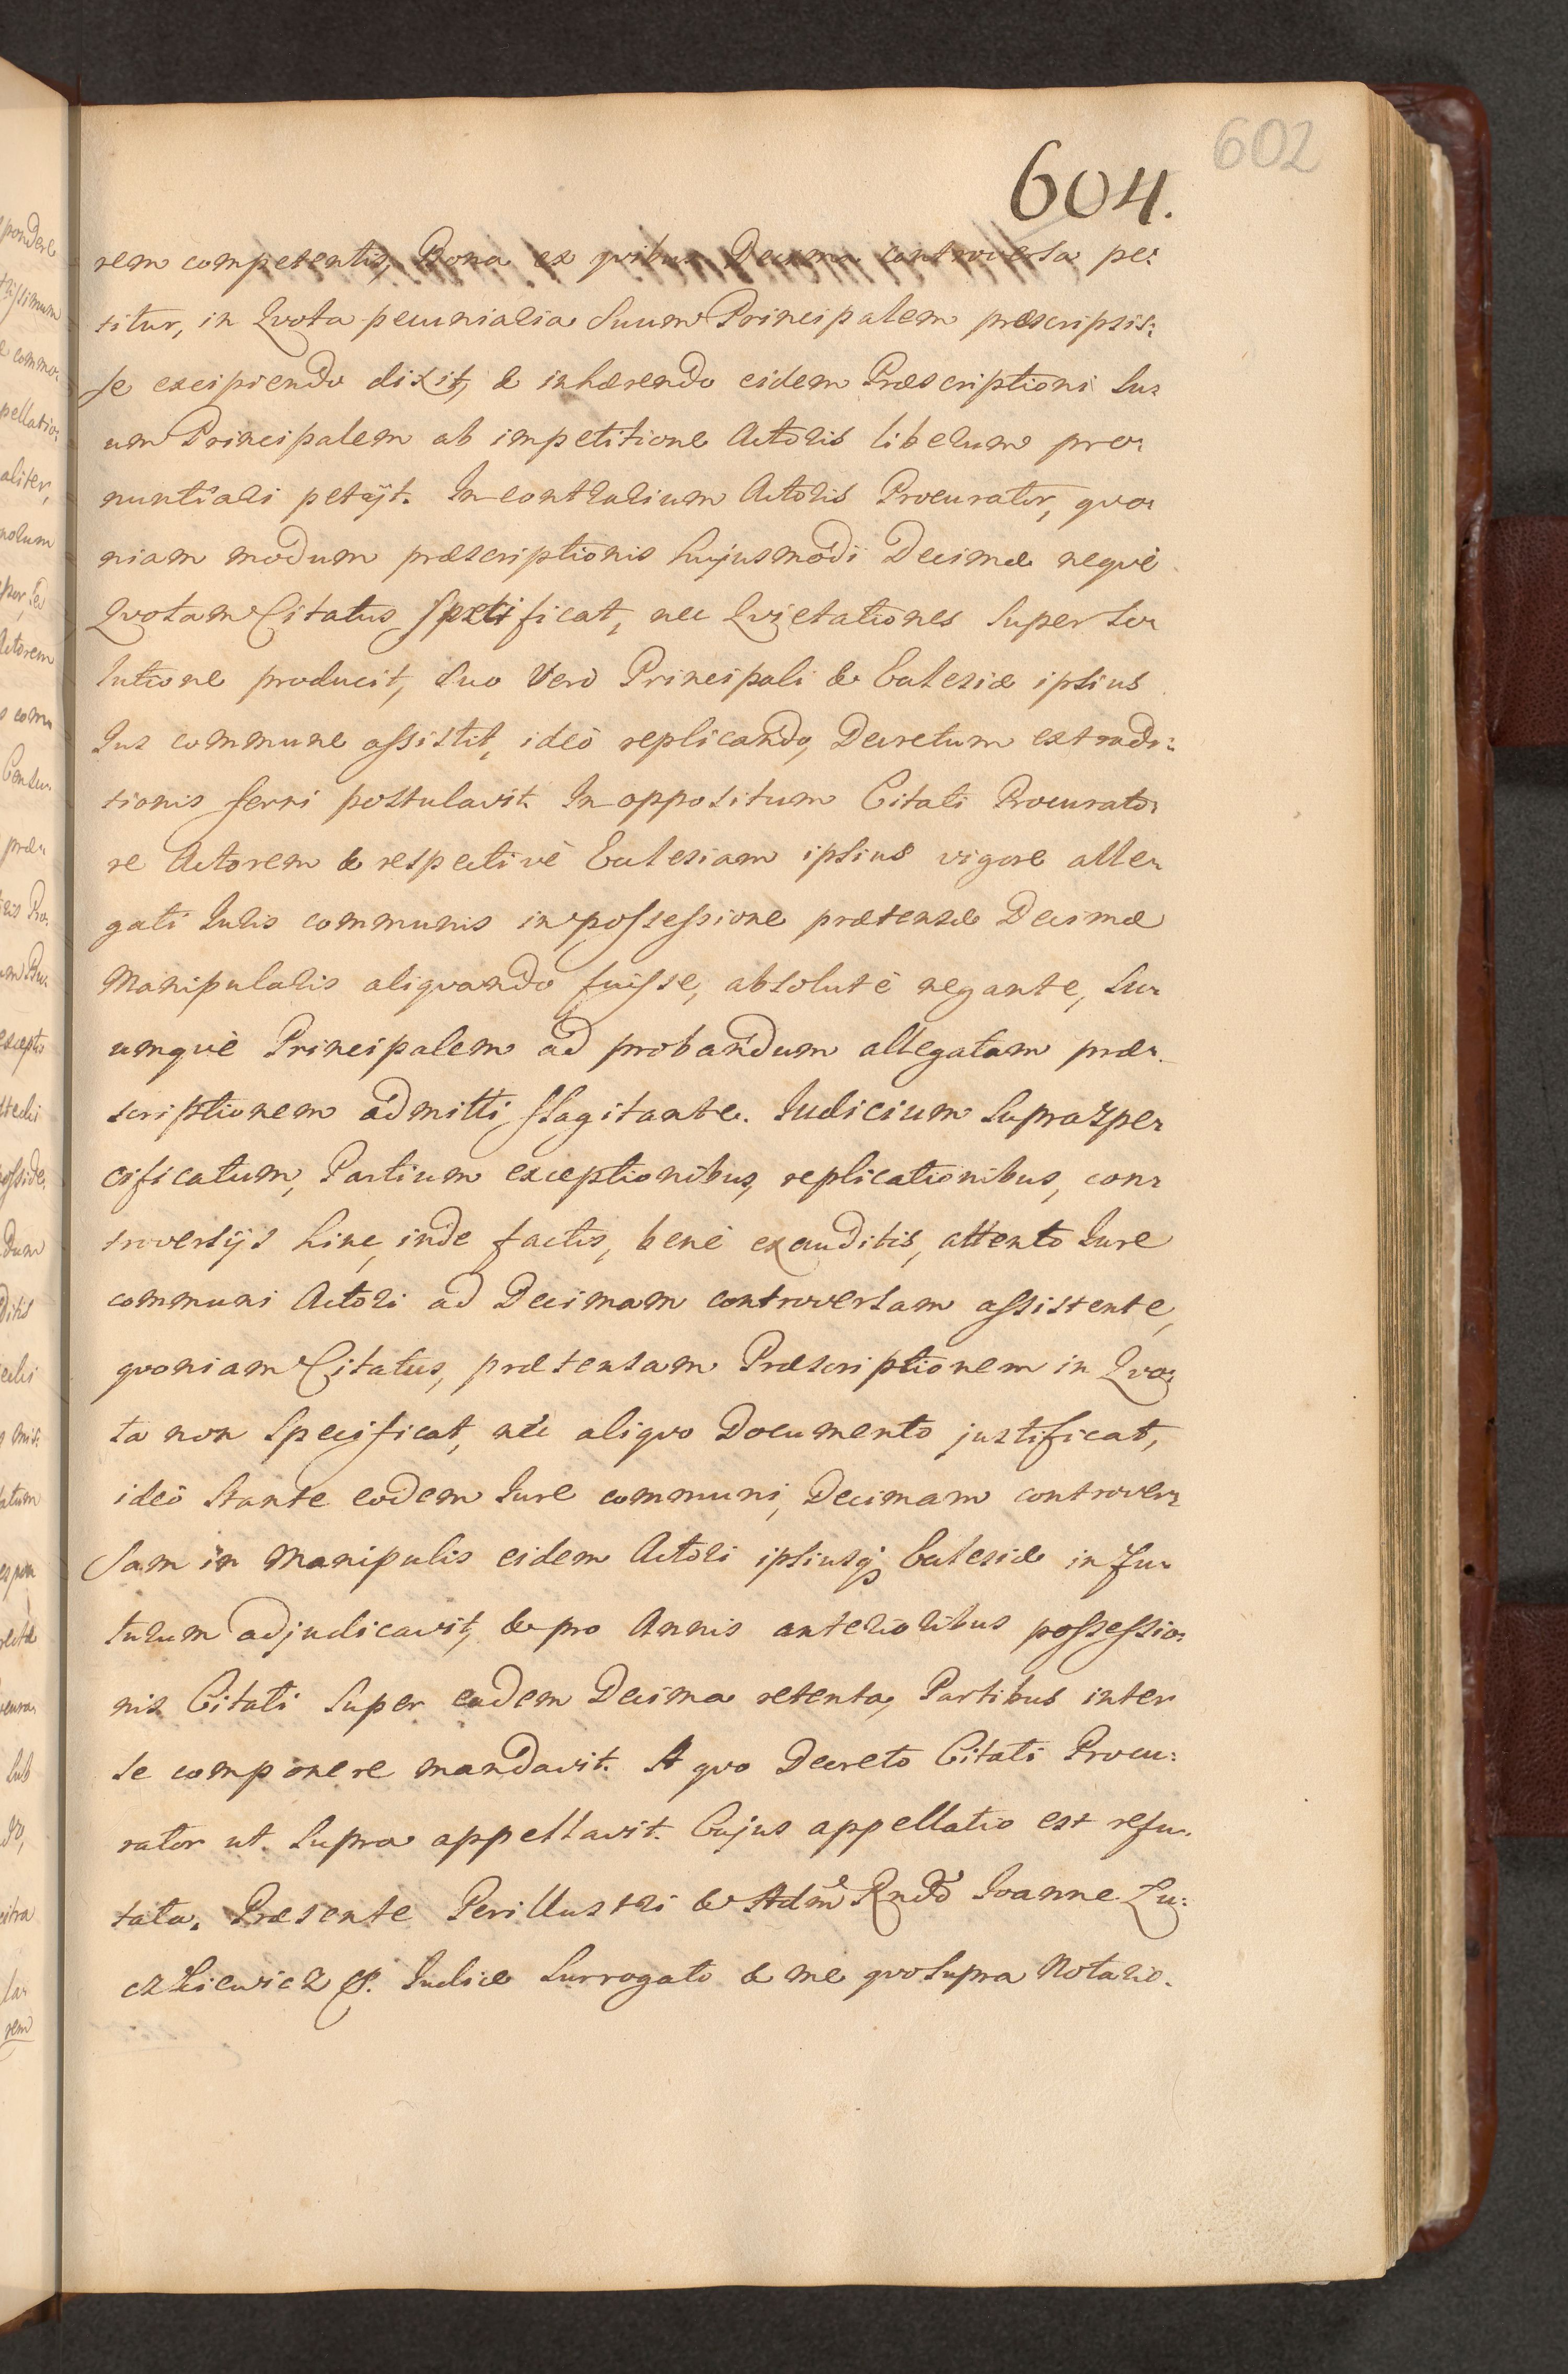 602
604.
rem competentis, Bona ex quibus Decima controversa pe:
titur, in Qvota pecuniaria Suum Principalem præscripsis:
se excipiendo dixit, & inhærendo eidem Præscriptioni Su:
um Principalem ab impetitione Actoris liberum pro:
nuntiari petijt. In contrarium Actoris Procurator, qvo:
niam modum præscriptionis hujusmodi Decimæ neqvè
Qvotam Citatus specificat, nec Qvietationes super so:
lutione producit, suo Verò Principali & Ecclesiæ ipsius
Jus commune assistit, ideò replicando, Decretum extradi:
tionis ferri postulavit. In oppositum Citati Procurato:
re Actorem & respectivè Ecclesiam ipsius vigore alle:
gati Juris communis in possessione prætensæ Decimæ
Manipularis aliqvando fuisse, absolutè negante, Su:
umqvè Principalem ad probandum allegatam præ:
scriptionem admitti flagitante. Judicium supraspe:
cificatum, Partium exceptionibus, replicationibus, con:
troversijs hinc, inde factis, benè exauditis, attento Jure
communi Actori ad Decimam controversam assistente,
qvoniam Citatus, prætensam Præscriptionem in Qvo:
ta non specificat, nec aliqvo Documento justificat,
ideò stante eodem Jure communi, Decimam controver:
sam in Manipulis eidem Actori ipsiusq; Ecclesiæ in fu:
turum adjudicavit, & pro Annis anterioribus possessio:
nis Citati super eadem Decima retenta, Partibus inter
se componere mandavit. A qvo Decreto Citati Procu:
rator ut supra appellavit. Cujus appellatio est refu:
tata. Præsente Perillustri & Adm Rndo Joanne Lu:
czkiewicz Judice Surrogato & me qvo supra Notario.